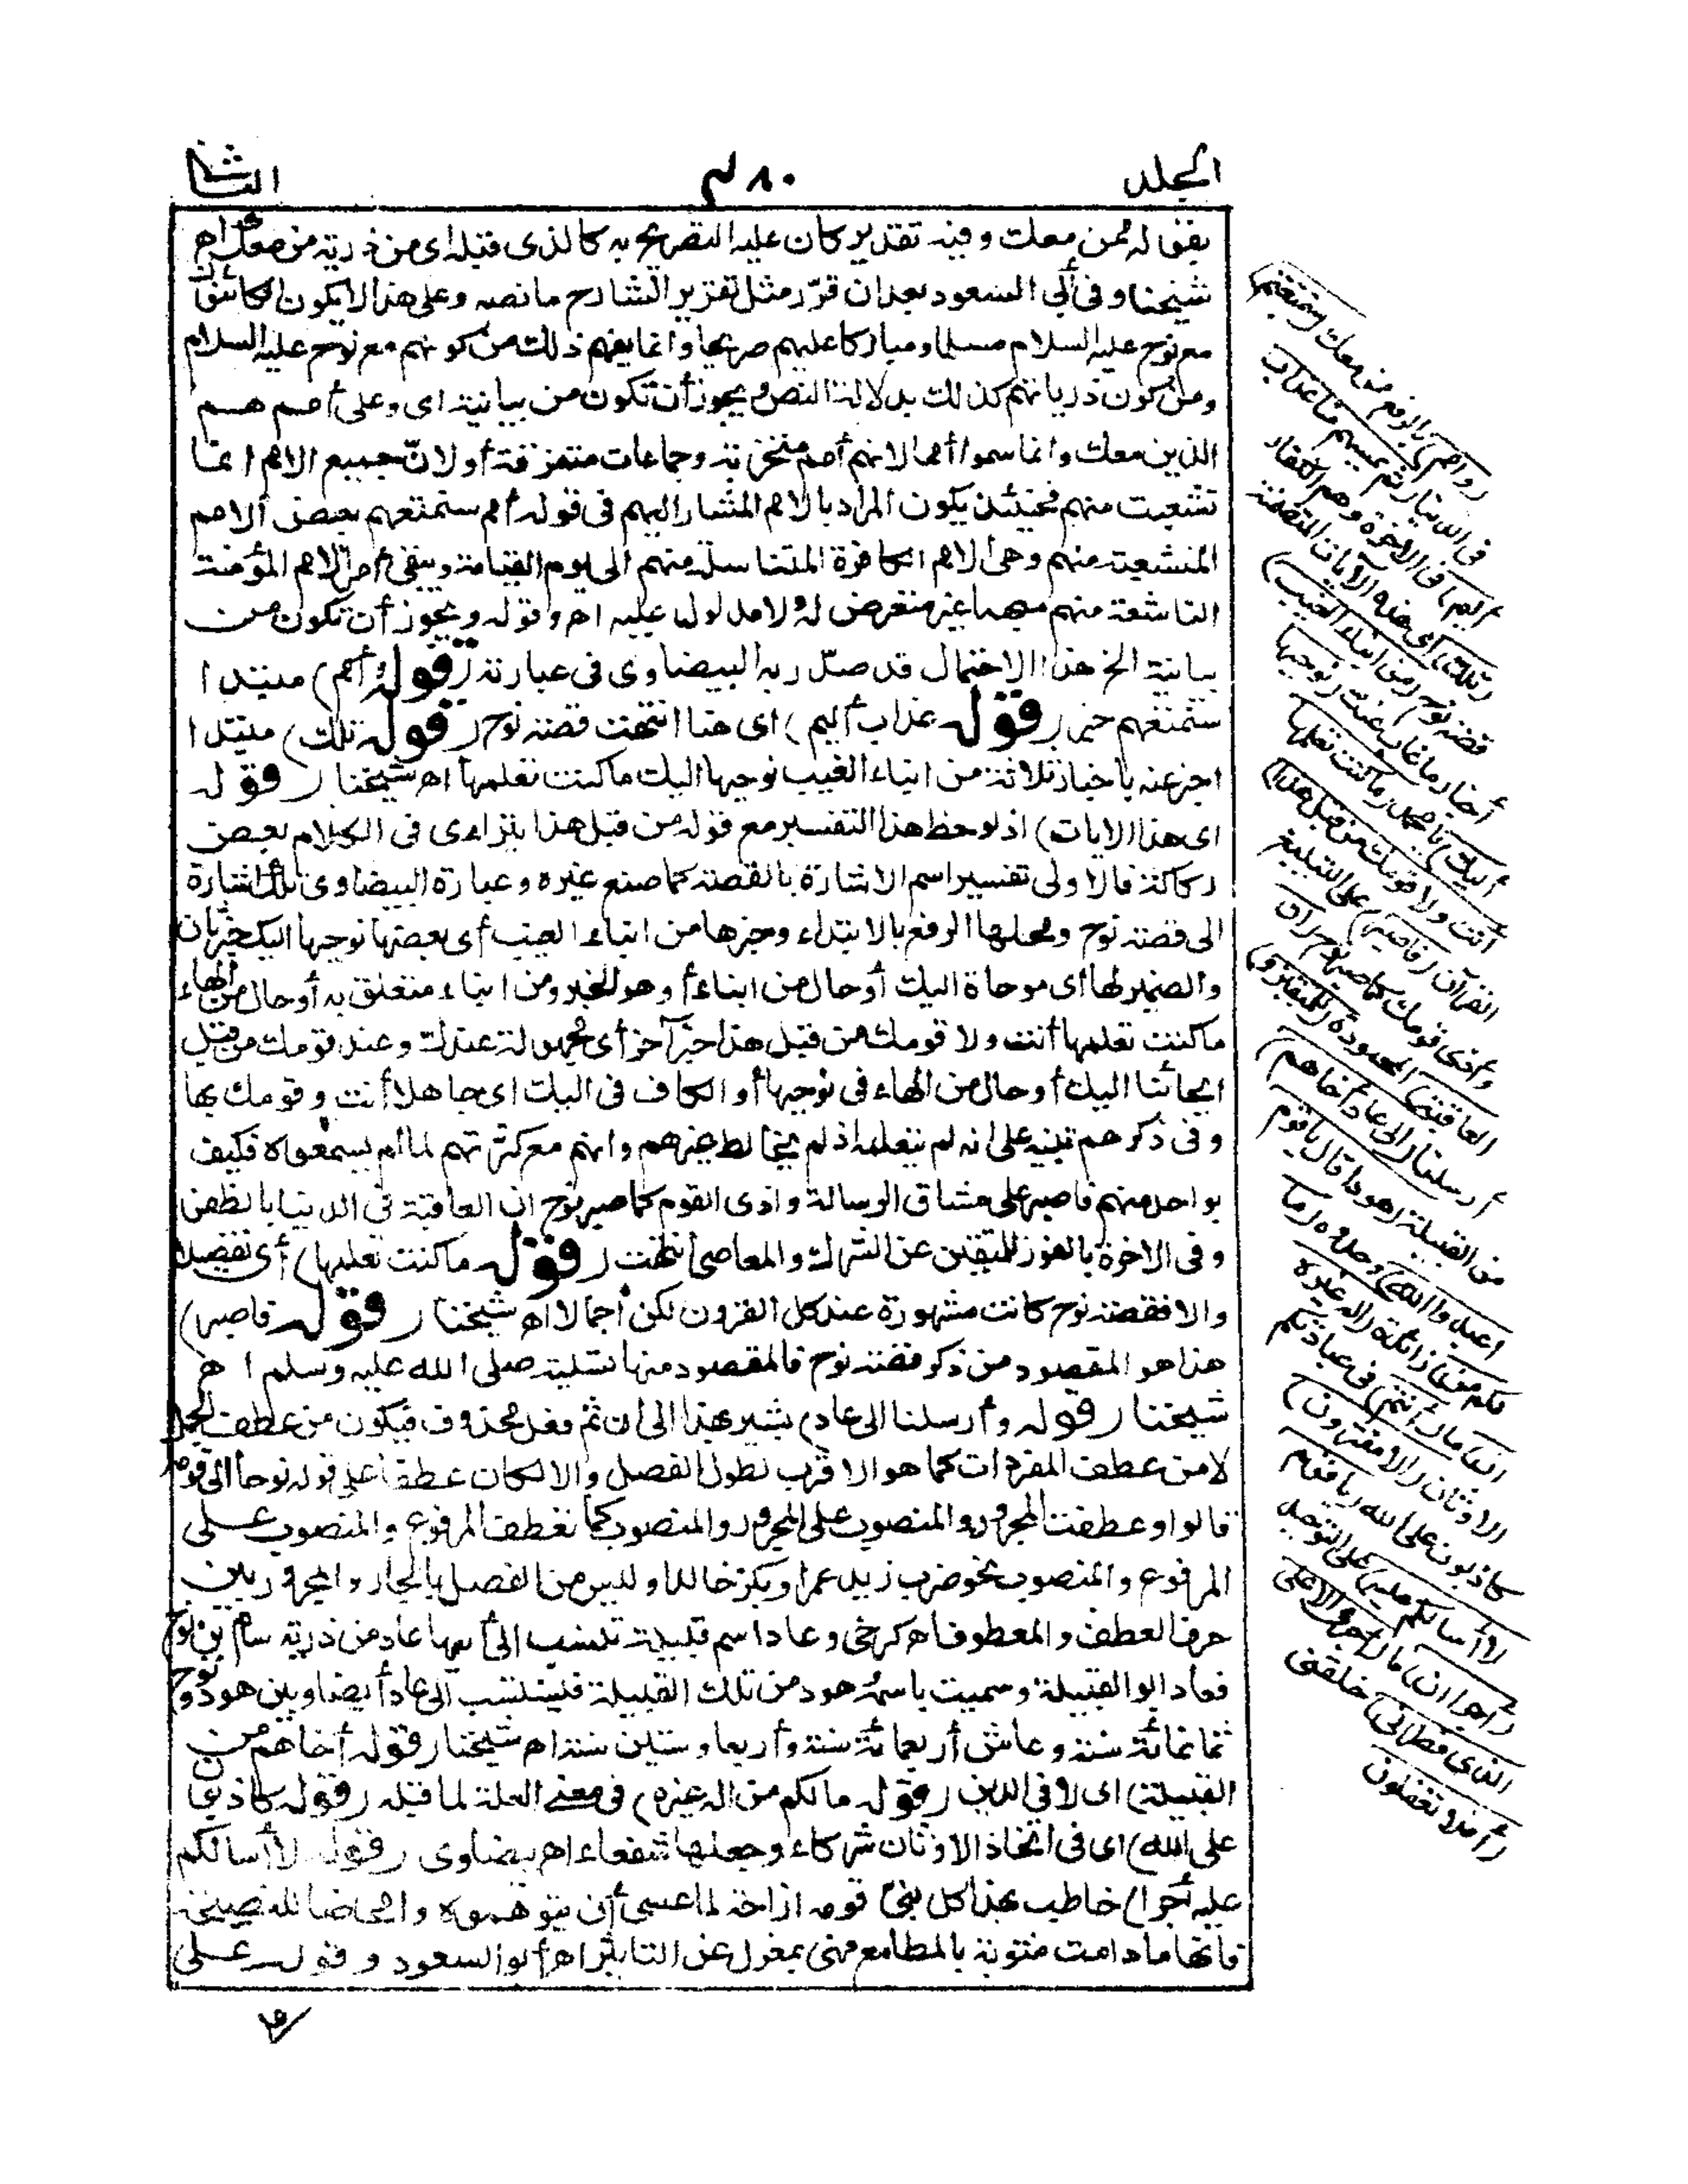 المجلد
٤٨٠
الثانى
بقوله ممن معك وفيه تقدير كان عليه التصريح به كالذى قبله اى من ذرية من معك اه
شيخنا وفى أبى السعود بعد ان قرّر مثل تقرير الشارح ما نصه وعلى هذا لا يكون الكائنون
مع نوح عليه السلام مسلما ومباركا عليهم صريحا وانما يفهم ذلك من كونهم مع نوح عليه السلام
ومن كون ذرياتهم كذلك بدلالة النص ويجوز أن تكون من بيانية اى وعلى أمم هم
الذين معك وانما سموا أمما لانهم أمم متحزبة وجماعات متفرقة أو لانّ جميع الامم انما
تشعبت منهم فحينئذ يكون المراد بالامم المشار اليهم فى قوله أمم سنمتعهم بعض الامم
المنشعبة منهم وهى الامم الكافرة المتناسلة منهم الى يوم القيامة ويبقى أمر الامم المؤمنة
الناشئة منهم مبهما غير متعرض له ولا مدلول عليه اه وقوله ويجوز أن تكون من
بيانية الخ هذا الاحتمال قد صدّر به البيضاوى فى عبارته (قوله أمم) مبتدا
سنمتعهم خبر (قوله عذاب أليم) اى هنا انتهت قصة نوح (قوله تلك) مبتدا
اخبر عنه باخبار ثلاثة من انباء الغيب نوحيها اليك ما كنت تعلمها اه شيخنا (قوله
اى هذه الايات) اذ لوحظ هذا التفسير مع قوله من قبل هذا يتراءى فى الكلام بعض
ركاكة فالاولى تفسير اسم الاشارة بالقصة كما صنع غيره وعبارة البيضاوى تلك اشارة
الى قصة نوح ومحلها الرفع بالابتداء وخبرها من انباء الغيب أى بعضها نوحيها اليك خبر ثان
والضمير لها أى موحاة اليك أو حال من انباء أو هو الخبر ومن انباء متعلق به أو حال من الهاء
ما كنت تعلمها أنت ولا قومك من قبل هذا خبر آخر أى مجهولة عندك وعند قومك من قبل
ايحائنا اليك أو حال من الهاء فى نوحيها أو الكاف فى اليك اى جاهلا أنت وقومك بها
وفى ذكرهم تنبيه على انه لم يتعلمه اذ لم يخالط غيرهم وانهم مع كثرتهم لما لم يسمعوه فكيف
بواحد منهم فاصبر على مشاق الرسالة واذى القوم كما صبر نوح ان العاقبة فى الدنيا بالظفر
وفى الاخرة بالفوز للمتقين عن الشرك والمعاصى انتهت (قوله ما كنت تعلمها) أى تفصيلا
والا فقصة نوح كانت مشهورة عند كل القرون لكن اجمالا اه شيخنا (قوله فاصبر)
هذا هو المقصود من ذكر قصة نوح فالمقصود منها تسلية صلى الله عليه وسلم اه
شيخنا (قوله وأرسلنا الى عاد) يشير بهذا الى ان ثم فعل محذوف فيكون من عطف الجمل
لا من عطف المفردات كما هو الاقرب لطول الفصل والا لكان عطفا على قوله نوحا الى قومه
قالوا وعطفت المجرور والمنصوب على المجرور والمنصوب كما تعطف المرفوع والمنصوب على
المرفوع والمنصوب نحو ضرب زيد عمرا وبكر خالدا وليس من الفصل بالجار والمجرور بين
حرف العطف والمعطوف اه كرخى وعاد اسم قبيلة تنسب الى أبيها عاد من ذرية سام بن نوح
فعاد ابو القبيلة وسميت باسمه هود من تلك القبيلة فينسب الى عاد أيضا وبين هود ونوح
ثمانمائة سنة وعاش أربعمائة سنة وأربعا وستين سنة اه شيخنا (قوله أخاهم من
القبيلة) اى لا فى الدين (قوله مالكم من اله غيره) فى معنى العلة لما قبله (قوله كاذبون
على الله) اى فى اتخاذ الاوثان شركاء وجعلها شفعاء اه بيضاوى (قوله لا أسالكم
عليه أجرا) خاطب بهذا كل نبىّ قومه ازاحة لما عسى أن يتوهموه وامحاضا للنصيحة
فانها ما دامت مشوبة بالمطامع فهى بمعزل عن التاثير اه أبو السعود وقوله على
(وأمم) بالرفع ممن معك (سنمتعهم)
فى الدنيا (ثم يمسهم منا عذاب
أليم) فى الاخرة وهم الكفار
(تلك) اى هذه الآيات المتضمنة
قصة نوح (من انباء الغيب)
أخبار ما غاب عنك (نوحيها
اليك) يا محمد (ما كنت تعلمها
أنت ولا قومك من قبل هذا)
القرآن (فاصبر) على التبليغ
وأذى قومك كما صبر نوح (ان
العاقبة) المحمودة (للمتقين و)
أرسلنا (الى عاد أخاهم)
من القبيلة (هودا قال يا قوم
اعبدوا الله) وحدوه (ما
لكم من) زائدة (اله غيره
ان) ما (أنتم) فى عبادتكم
الاوثان (الا مفترون)
كاذبون على الله (يا قوم
لا أسالكم عليه) على التوحيد
(أجرا ان) ما (أجرى الا على
الذى فطرنى) خلقنى
(أفلا تعقلون